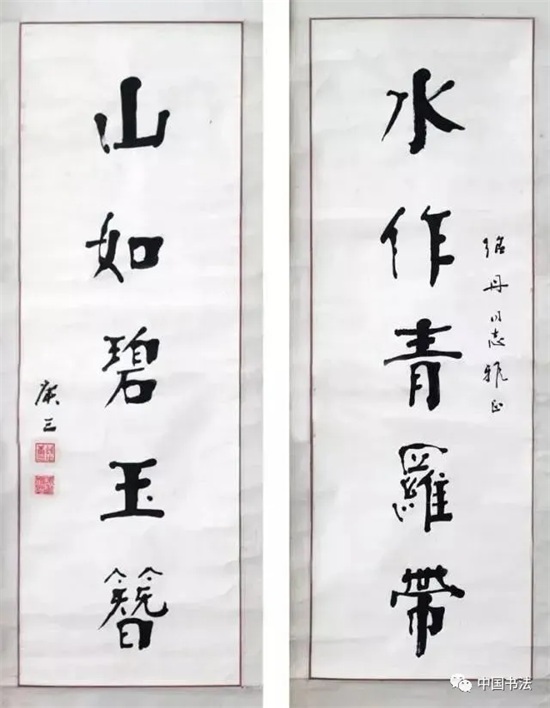 水作青羅帶
紹丹同志雅正
山如碧玉簪
中国书法